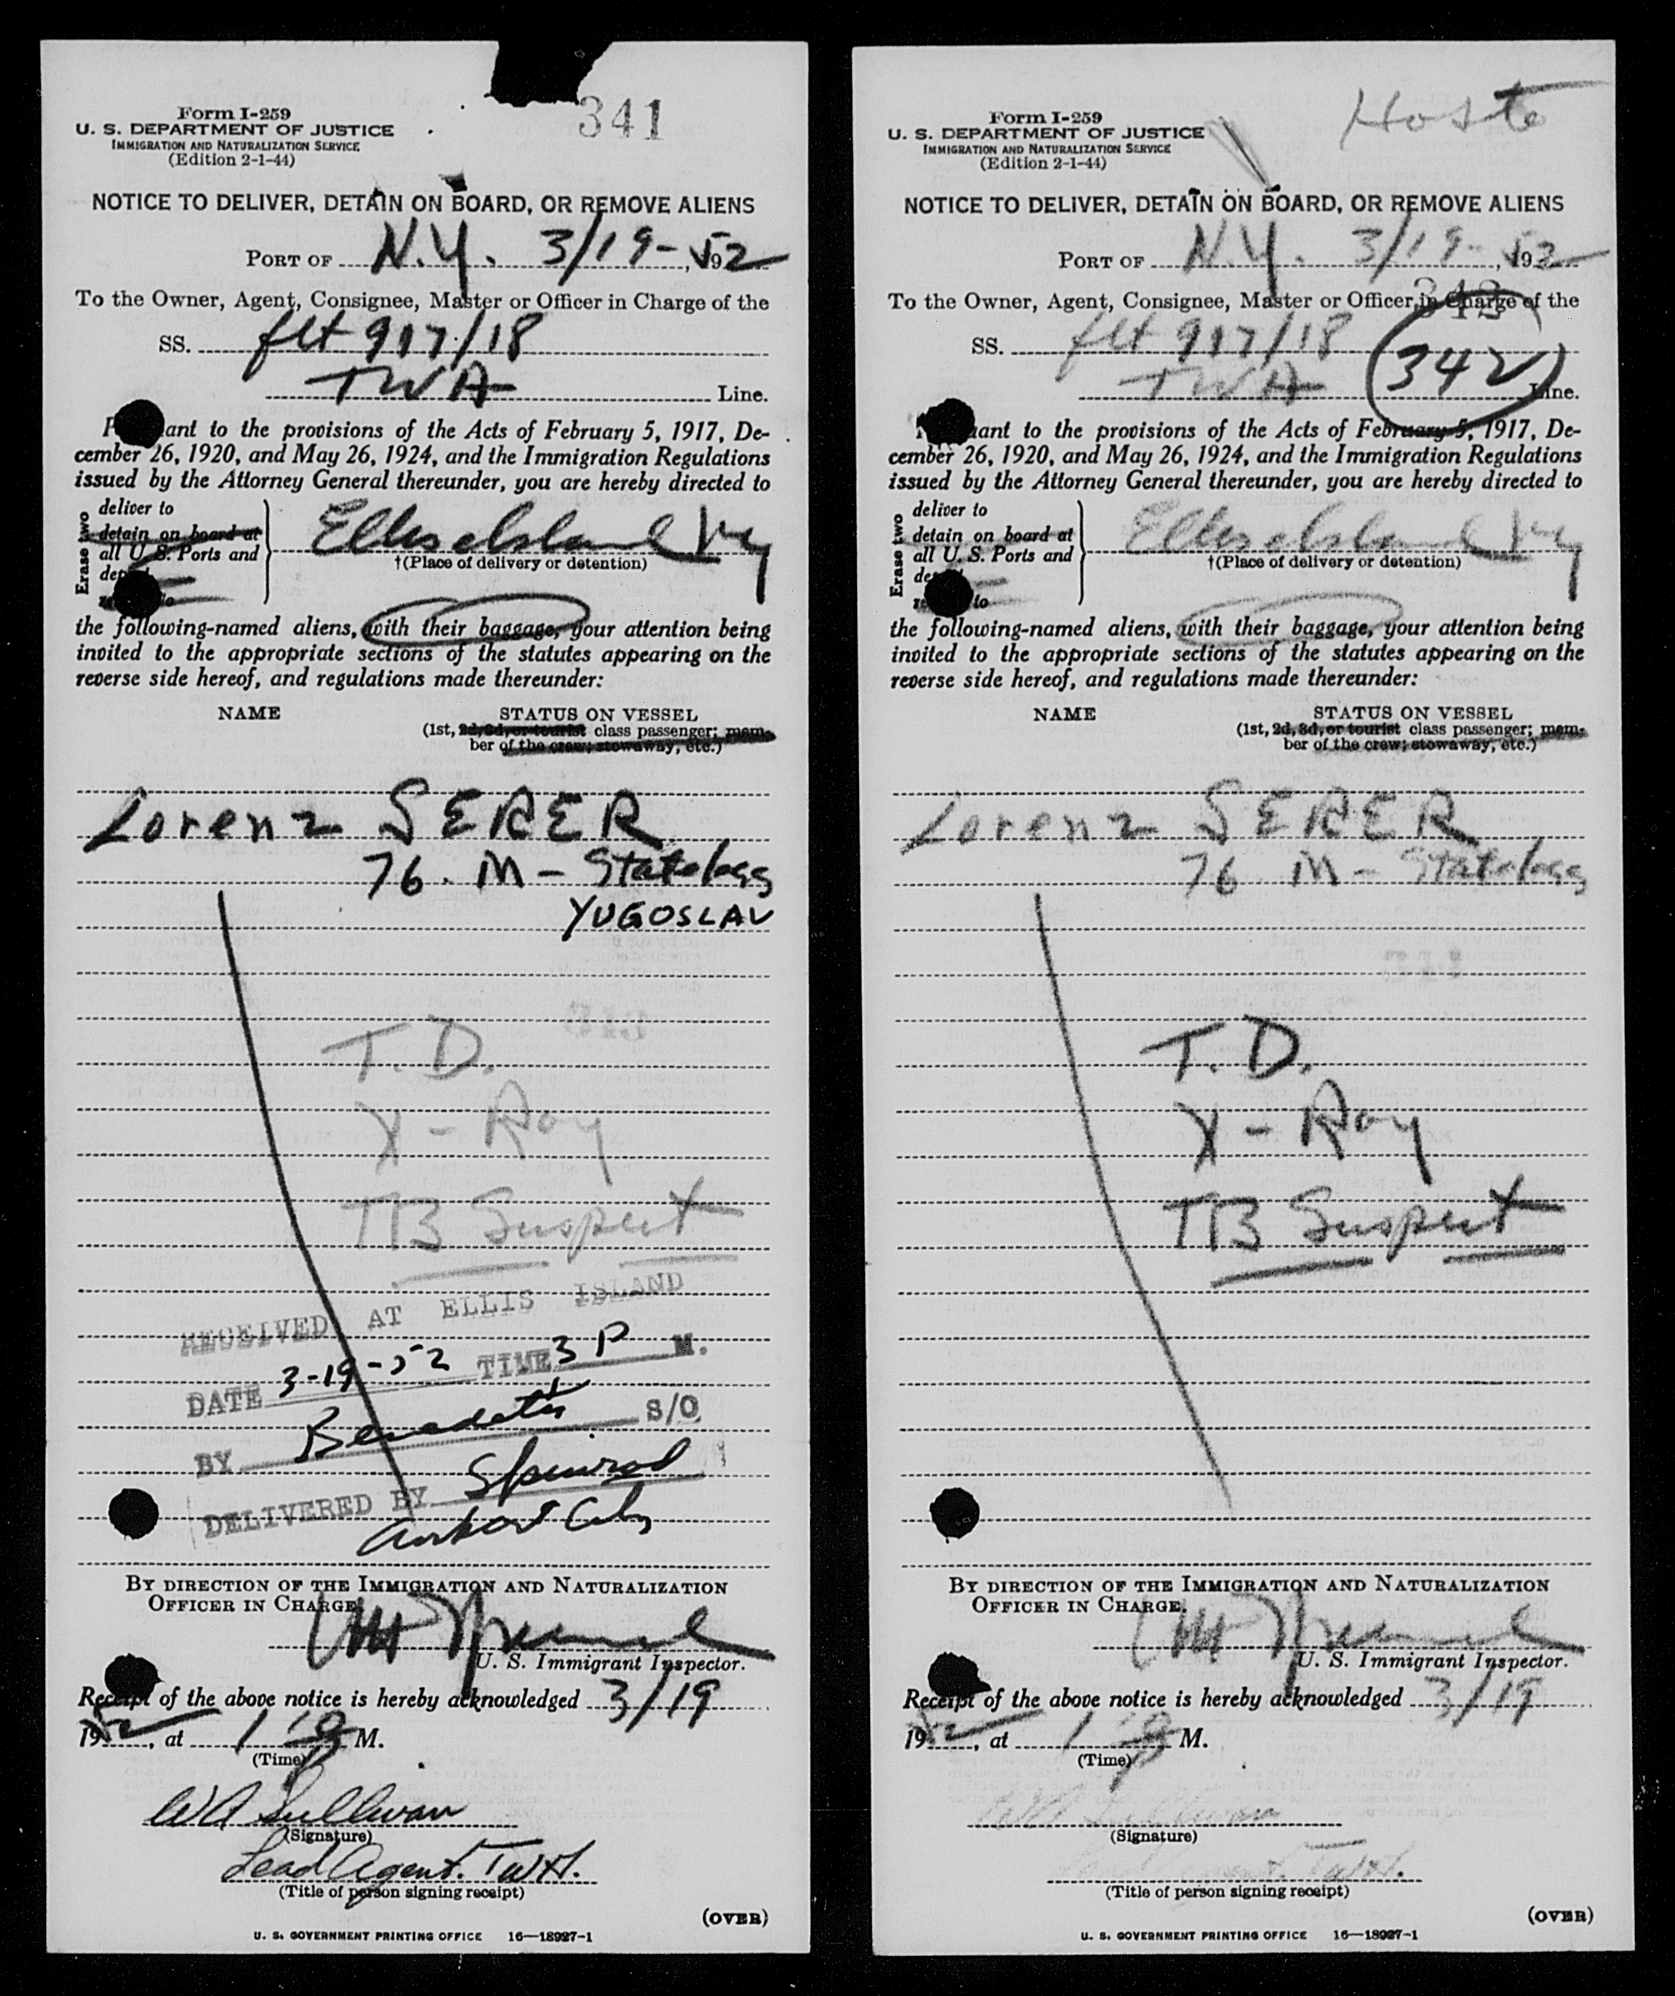 Form I-259
U. S. DEPARTMENT OF JUSTICE
IMMIGRATION AND NATURALIZATION SERVICE
(Edition 2-1-44)
341
NOTICE TO DELIVER, DETAIN ON BOARD, OR REMOVE ALIENS
PORT OF N.Y. 3/19-, 1952
To the Owner, Agent, Consignee, Master or Officer in Charge of the
SS. flt 917/18
TWA Line.
ant to the provisions of the Acts of February 5, 1917, De-
cember 26, 1920, and May 26, 1924, and the Immigration Regulations
issued by the Attorney General thereunder, you are hereby directed to
Erase two
deliver to
detain on board at
all U. S. Ports and
to
Ellis Island NY
†(Place of delivery or detention)
the following-named aliens, with their baggage, your attention being
invited to the appropriate sections of the statutes appearing on the
reverse side hereof, and regulations made thereunder:
NAME STATUS ON VESSEL
(1st, 2d, 3d, or tourist class passenger; mem-
ber of the crew; stowaway, etc.)
Lorenz SERER
76. M - Stateless
YUGOSLAV
T. D.
X - Ray
TB Suspect
RECEIVED AT ELLIS ISLAND
DATE 3-19-52 TIME 3 P M.
BY S/O
DELIVERED BY
BY DIRECTION OF THE IMMIGRATION AND NATURALIZATION
OFFICER IN CHARGE
U. S. Immigrant Inspector.
Receipt of the above notice is hereby acknowledged 3/19
1952, at M.
(Time)
WA Sullivan
(Signature)
Lead Agent. TWA.
(Title of person signing receipt)
(OVER)
U. S. GOVERNMENT PRINTING OFFICE 16—18927-1
Form I-259
U. S. DEPARTMENT OF JUSTICE
IMMIGRATION AND NATURALIZATION SERVICE
(Edition 2-1-44)
NOTICE TO DELIVER, DETAIN ON BOARD, OR REMOVE ALIENS
PORT OF N.Y. 3/19-, 1952
To the Owner, Agent, Consignee, Master or Officer in Charge of the
342
SS. flt 917/18
342
TWA Line.
ant to the provisions of the Acts of February 5, 1917, De-
cember 26, 1920, and May 26, 1924, and the Immigration Regulations
issued by the Attorney General thereunder, you are hereby directed to
Erase two
deliver to
detain on board at
all U. S. Ports and
to
Ellis Island NY
†(Place of delivery or detention)
the following-named aliens, with their baggage, your attention being
invited to the appropriate sections of the statutes appearing on the
reverse side hereof, and regulations made thereunder:
NAME STATUS ON VESSEL
(1st, 2d, 3d, or tourist class passenger; mem-
ber of the crew; stowaway, etc.)
Lorenz SERER
76 M - Stateless
T. D.
X - Ray
TB Suspect
BY DIRECTION OF THE IMMIGRATION AND NATURALIZATION
OFFICER IN CHARGE
U. S. Immigrant Inspector.
Receipt of the above notice is hereby acknowledged 3/19
1952, at M.
(Time)
WA Sullivan
(Signature)
TWA.
(Title of person signing receipt)
(OVER)
U. S. GOVERNMENT PRINTING OFFICE 16—18927-1